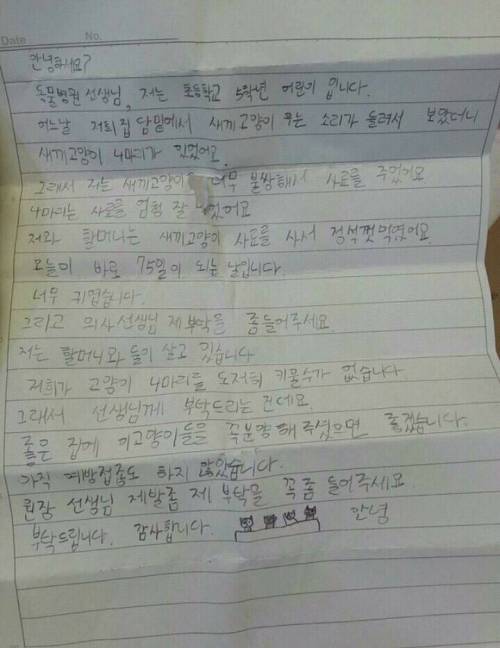 Date No.
안녕하세요?
동물병원 선생님, 저는 초등학교 5학년 어린이 입니다.
어느날 저희 집 담밑에서 새끼고양이 우는 소리가 들려서 보았더니
새끼고양이 4마리가 있었어요.
그래서 저는 새끼고양이 너무 불쌍해서 사료를 주었어요
4마리는 사료를 엄청 잘 었어요
저와 할머니는 새끼고양이 사료를 사서 정성껏 먹였어요
오늘이 바로 75일이 되는 날입니다.
너무 귀엽습니다.
그리고 의사선생님 제부탁을 좀들어주세요
저는 할머니와 둘이 살고 있습니다
저희가 고양이 4마리를 도저히 키울수가 없습니다
그래서 선생님께 부탁드리는 건데요.
좋은 집에 이고양이들을 꼭분양해주셨으면 좋겠습니다.
아직 예방접종도 하지 않았습니다.
원장 선생님 제발좀 제 부탁을 꼭좀 들어주세요
부탁드립니다. 감사합니다. 안녕